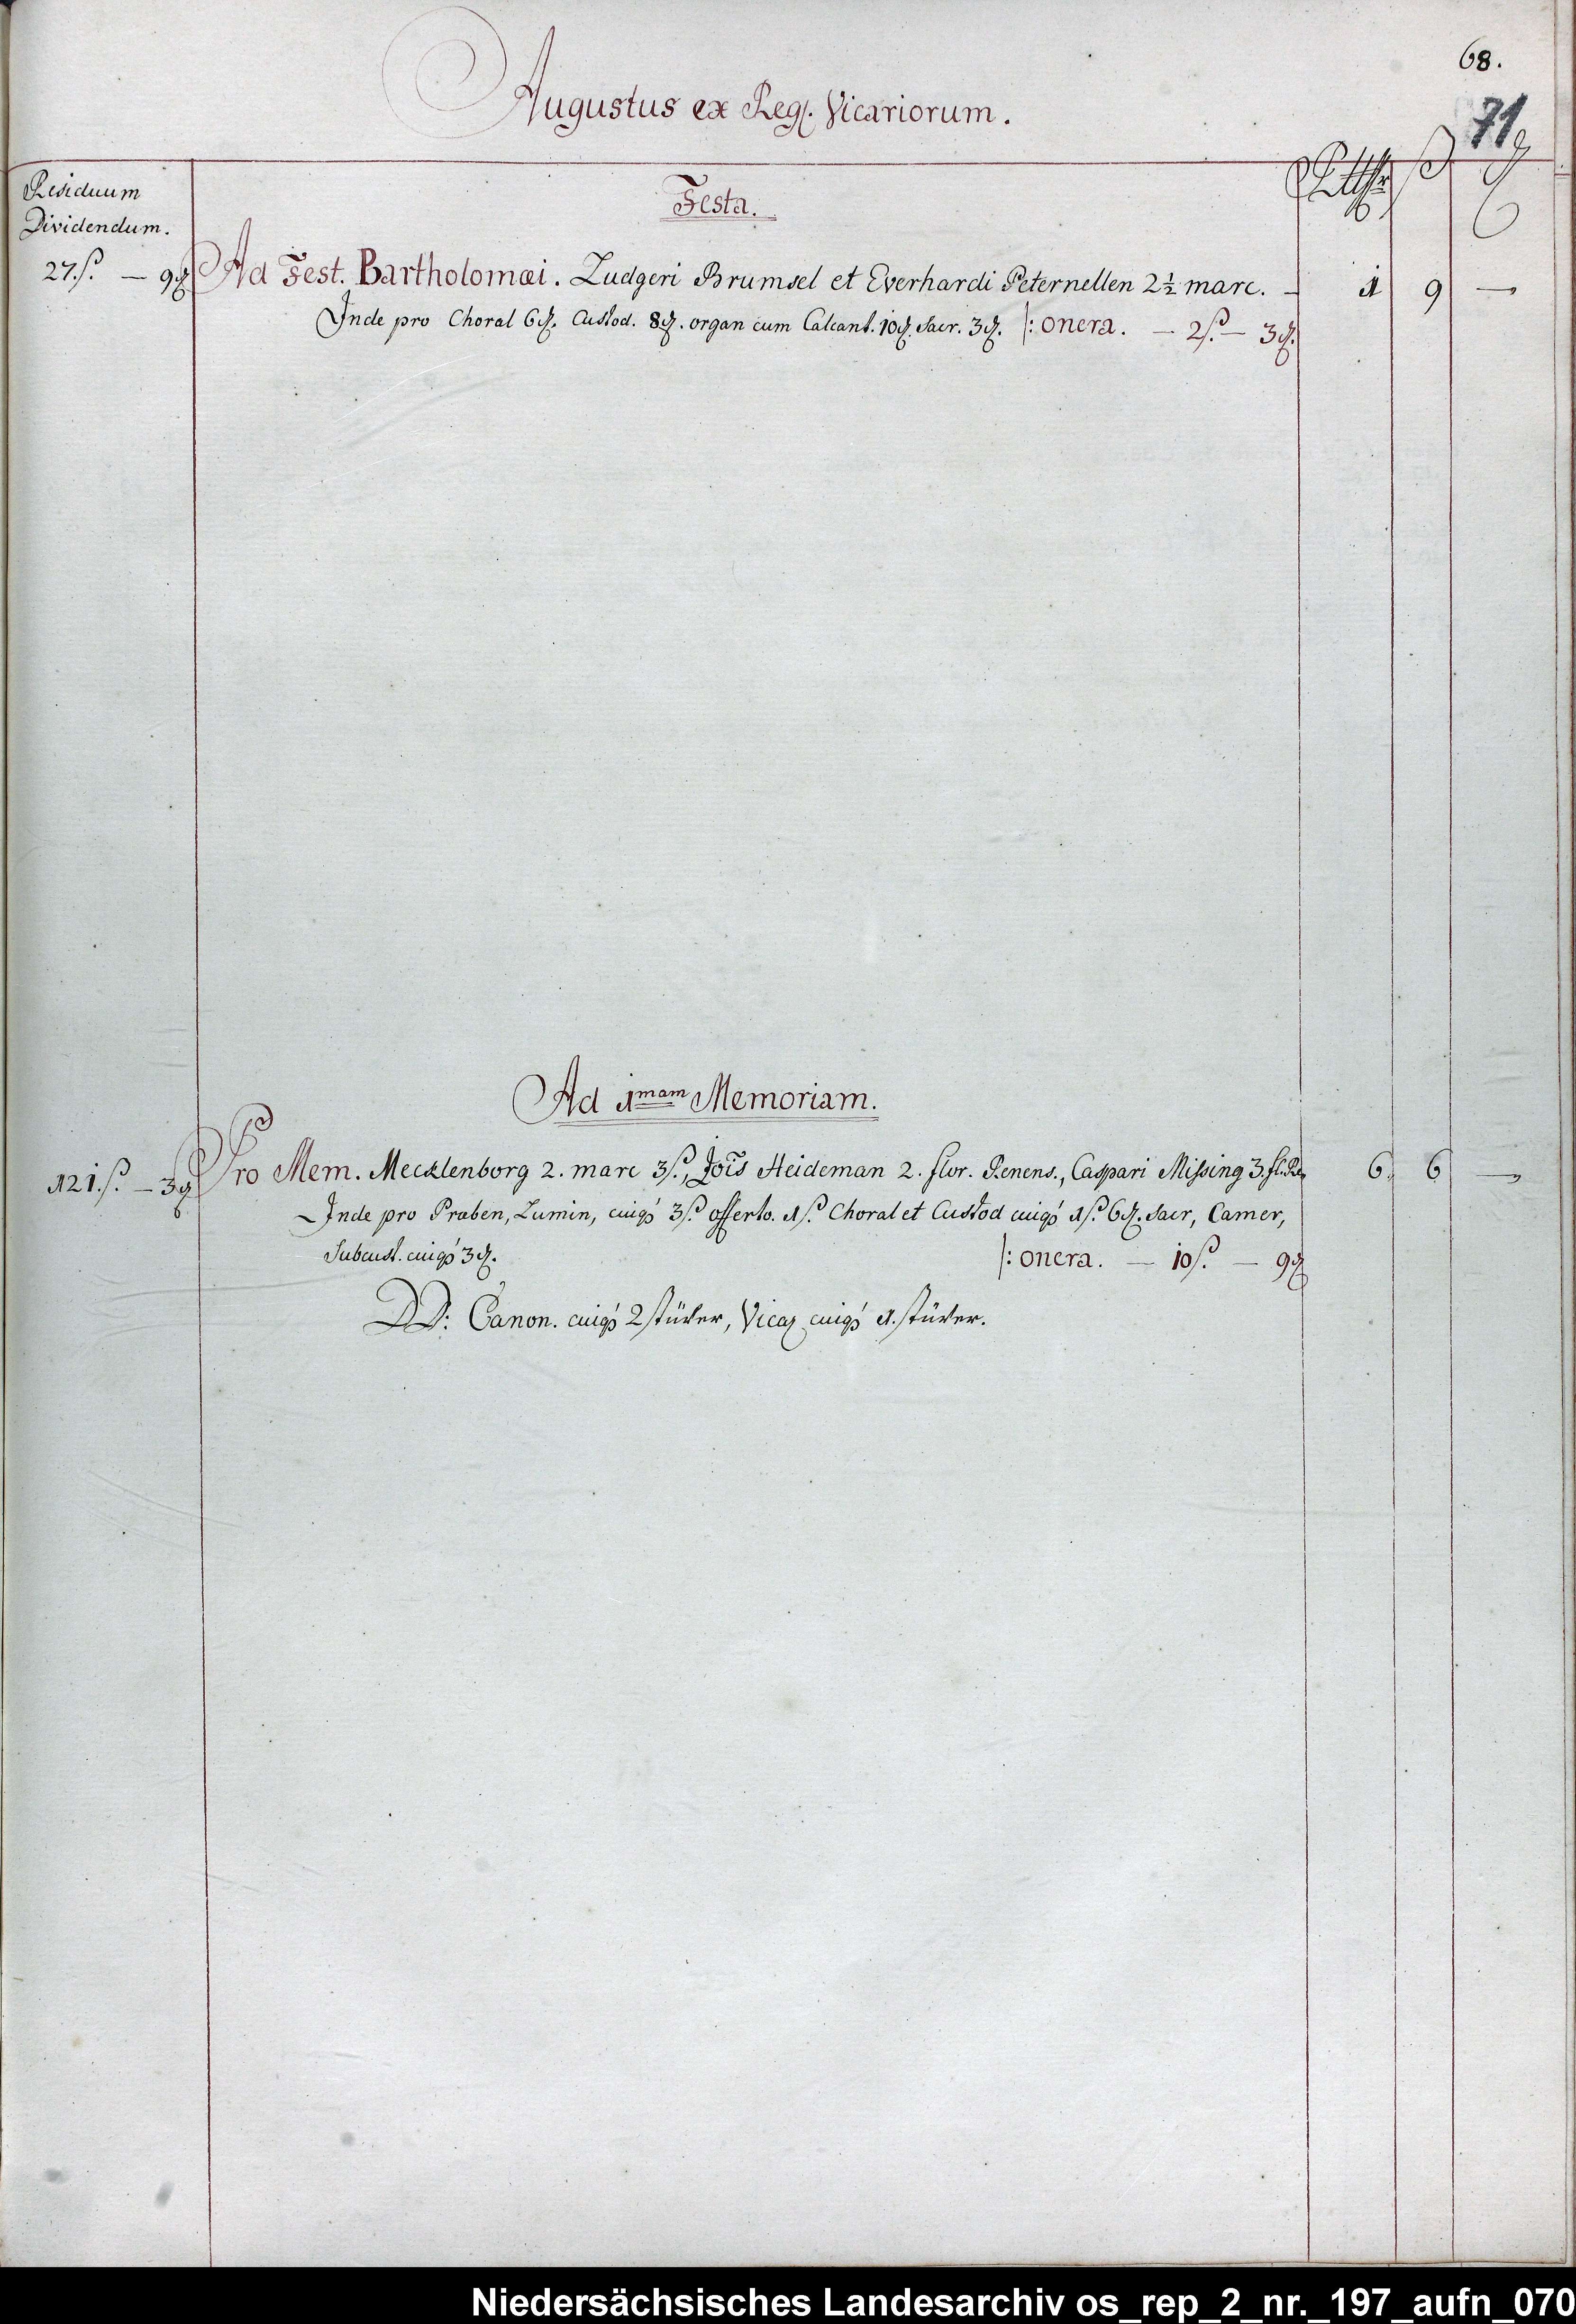 68.
71
Augustus ex Reg. Vicariorum.
Residuum
Dividendum.
Festa.
Rtthlr ß ₰
27 ß. — 9 ₰ Ad Fest. Bartholomæi. Ludgeri Brumsel et Everhardi Peternellen 2½ marc. — 1 9 —
Inde pro Choral 6 ₰. Custod. 8 ₰. organ cum Calcant. 10 ₰. Sacr. 3 ₰. /: onera. — 2 ß. — 3 ₰.
Ad 1mam Memoriam.
121 ß. — 3 ₰ Pro Mem. Mecklenborg 2. marc 3 ß., Jois Heideman 2. flor. Renens., Caspari Missing 3. fl. Re 6. 6 —
Inde pro Præben, Lumin, cuiqs 3 ß. offerto. 1 ß. Choral et Custod cuiqs 1 ß. 6 ₰. Sacr, Camer,
Subcust. cuiqs 3 ₰. /: onera. — 10 ß. — 9 ₰
DD: Canon. cuiqs 2 stüver, Vicar cuiqs 1. stüver.
Niedersächsisches Landesarchiv os_rep_2_nr._197_aufn_070